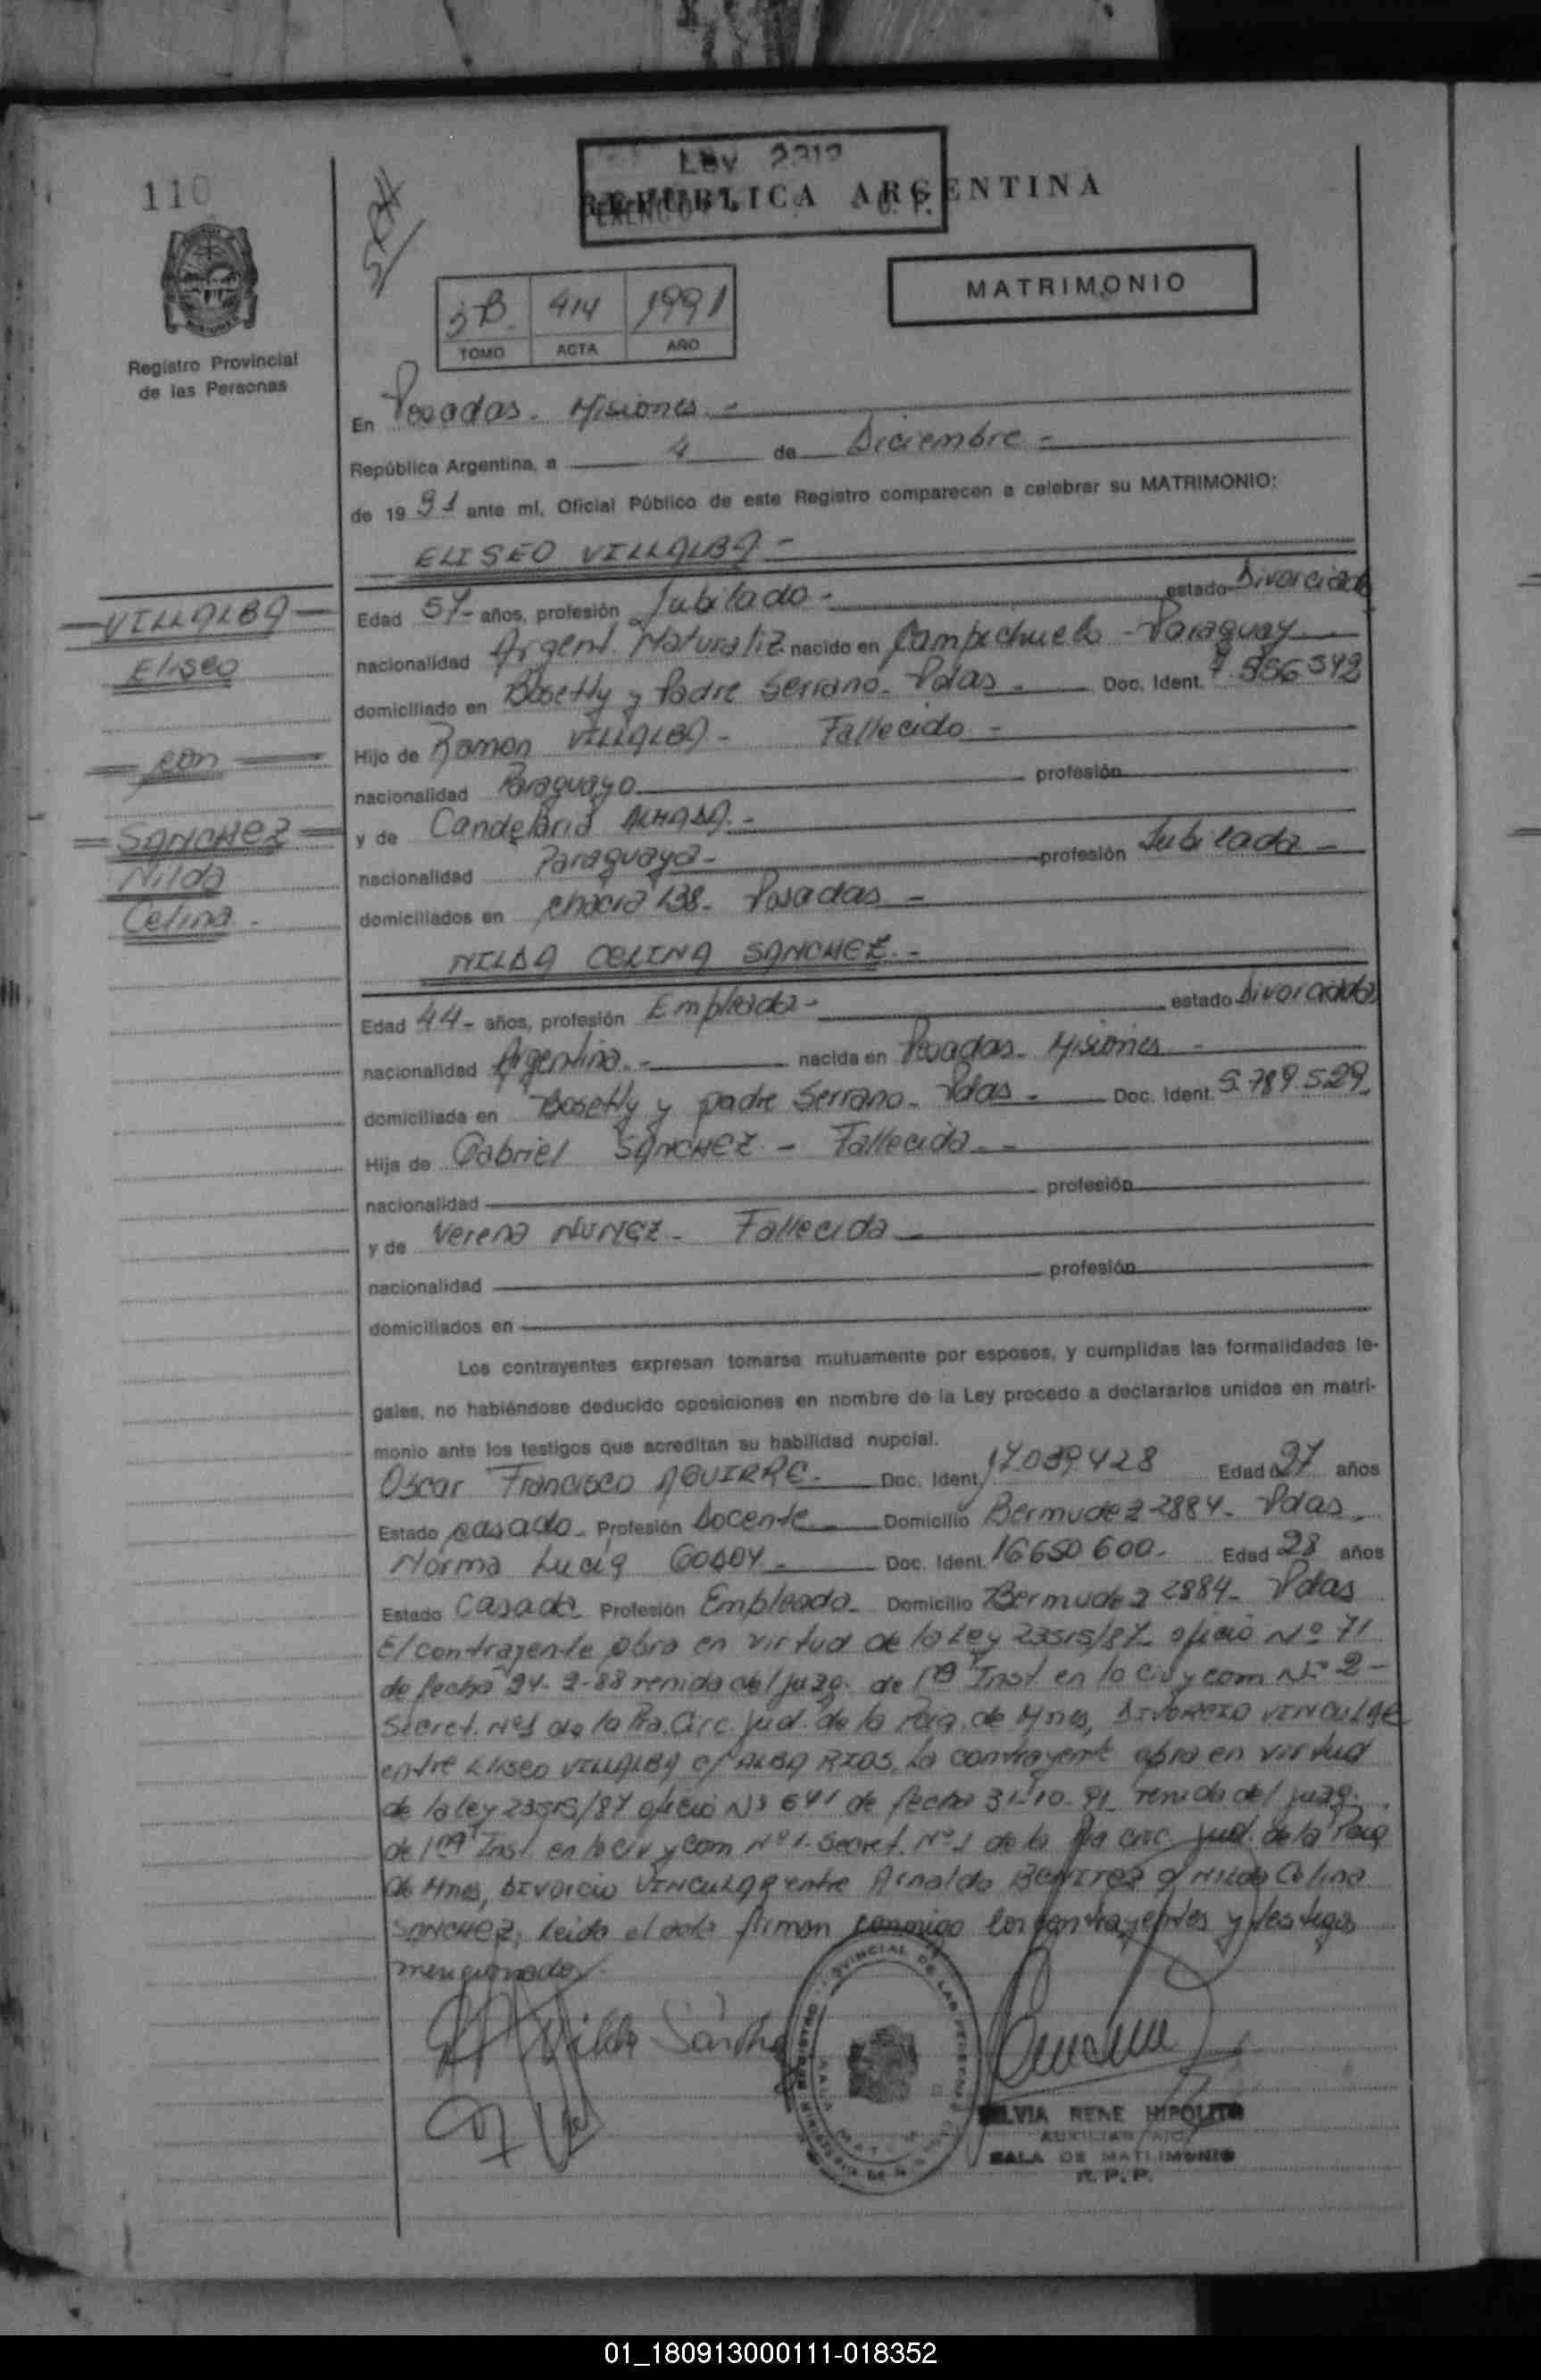 110
Ley 2312
REPUBLICA ARGENTINA
MATRIMONIO
3B. 414 1991
TOMO ACTA AÑO
Registro Provincial
de las Personas
En Posadas - Misiones -
República Argentina, a 4 de Diciembre -
de 19 91 ante mí, Oficial Público de este Registro comparecen a celebrar su MATRIMONIO:
ELISEO VILLALBA -
VILLALBA
Eliseo
con
SANCHEZ
Nilda
Celina -
Edad 57- años, profesión Jubilado - estado Divorciado
nacionalidad Argent. Naturaliz. nacido en Campichuelo - Paraguay
domiciliado en Bosetty y Padre Serrano - Pdas - Doc. Ident. 7.556542
Hijo de Ramon VILLALBA - Fallecido -
nacionalidad Paraguayo profesión
y de Candelaria -
nacionalidad Paraguaya - profesión Jubilada -
domiciliados en chacra 138 - Posadas -
NILDA CELINA SANCHEZ. -
Edad 44- años, profesión Empleada - estado Divorciada
nacionalidad Argentina. - nacida en Posadas - Misiones -
domiciliada en Bosetty y padre Serrano - Pdas - Doc. Ident. 5.789.529.
Hija de Gabriel SANCHEZ - Fallecido -
nacionalidad profesión
y de Verena NUÑEZ - Fallecida
nacionalidad profesión
domiciliados en
Los contrayentes expresan tomarse mutuamente por esposos, y cumplidas las formalidades le-
gales, no habiéndose deducido oposiciones en nombre de la Ley procedo a declararlos unidos en matri-
monio ante los testigos que acreditan su habilidad nupcial.
Oscar Francisco AGUIRRE. Doc. Ident. 17.039.428 Edad 27 años
Estado casado - Profesión Docente Domicilio Bermudez 2884 - Pdas.
Norma Lucia GODOY - Doc. Ident. 16650600 - Edad 28 años
Estado Casada Profesión Empleada - Domicilio Bermudez 2884 - Pdas
El contrayente obra en virtud de la Ley 23515/87 oficio Nº 71
de fecha 24-2-88 venido del juzg. de 1ra Inst en lo civ y com Nº 2 -
Secret. Nº1 de la Pra. Circ. jud. de la Pcia. de Mnes, DIVORCIO VINCULAR
entre Eliseo VILLALBA c/ ALBA RIOS, La contrayente obra en virtud
de la ley 23515/87 oficio Nº 641 de fecha 31-10-91 venido del juzg.
de 1ra Inst en lo civ y com Nº 1. Secret. Nº 1 de la Pra circ jud. de la Pcia
de Mnes, Divorcio VINCULAR entre Arnaldo BENITEZ c/ Nilda Celina
SANCHEZ, Leida el acta firman conmigo los contrayentes y testigos
mencionados.
Nilda Sánchez
SILVIA RENE HIPOLITO
AUXILIAR
SALA DE MATRIMONIO
R. P. P.
01_180913000111-018352